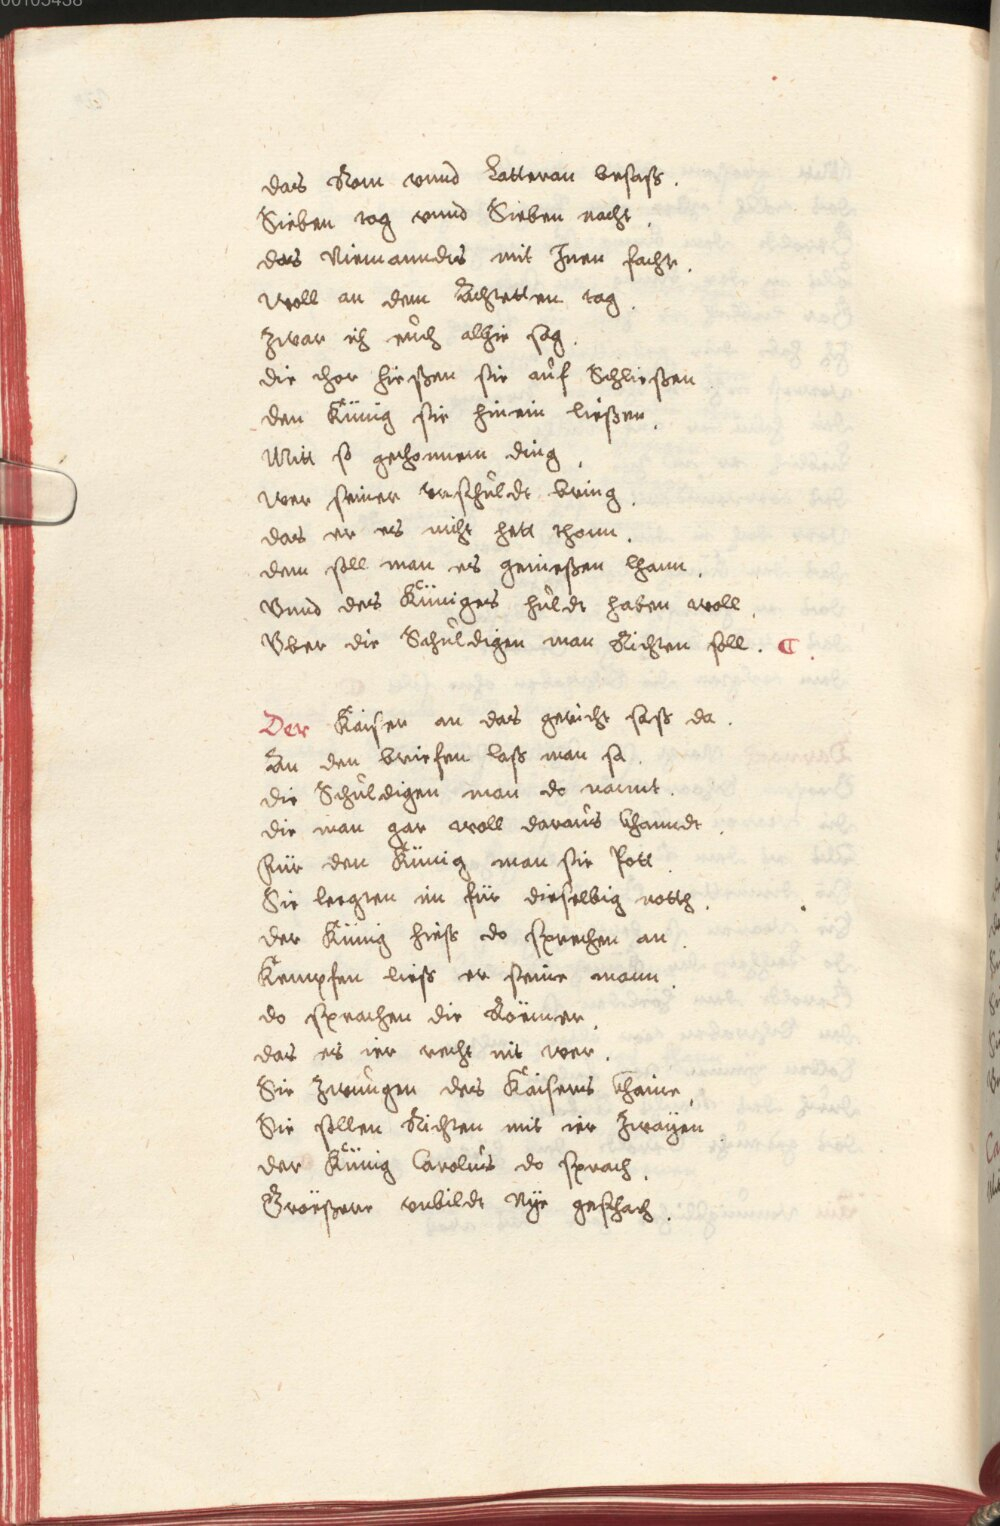 das Rom vnnd Latteran besaß.
Sieben tag vnnd Sieben nacht.
das Niemanndts mit Inen facht.
woll an dem Achtetten tag.
Zwar ich euch alhie sag.
die thor hießen sie auf Schließen
den Künig sie hinein ließen.
Mitt so gethonnem ding.
wer seiner vnschuldt bring.
das er es nicht hett thonn.
dem soll man es genießen lhann.
Vnnd des Küniges huldt haben woll.
Vber die Schuldigen man Richten soll. ¶.
Der Kaiser an das gericht saß da.
An den briefen laß man sa.
die Schuldigen man do nannt.
die man gar woll daraus khanndt.
Für den Künig man sie Pott
Sie leegten im für dieselbig notth.
der Künig hieß do sprechen an.
Kempfen ließ er seine mann.
do sprachen die Römer.
das es ier recht nit wer.
Sie Zwungen des Kaisers khaine.
Sie sollen Richten mit ier Zwayen.
der Künig Carolus do sprach.
Größere vnbildt Nye geschach.